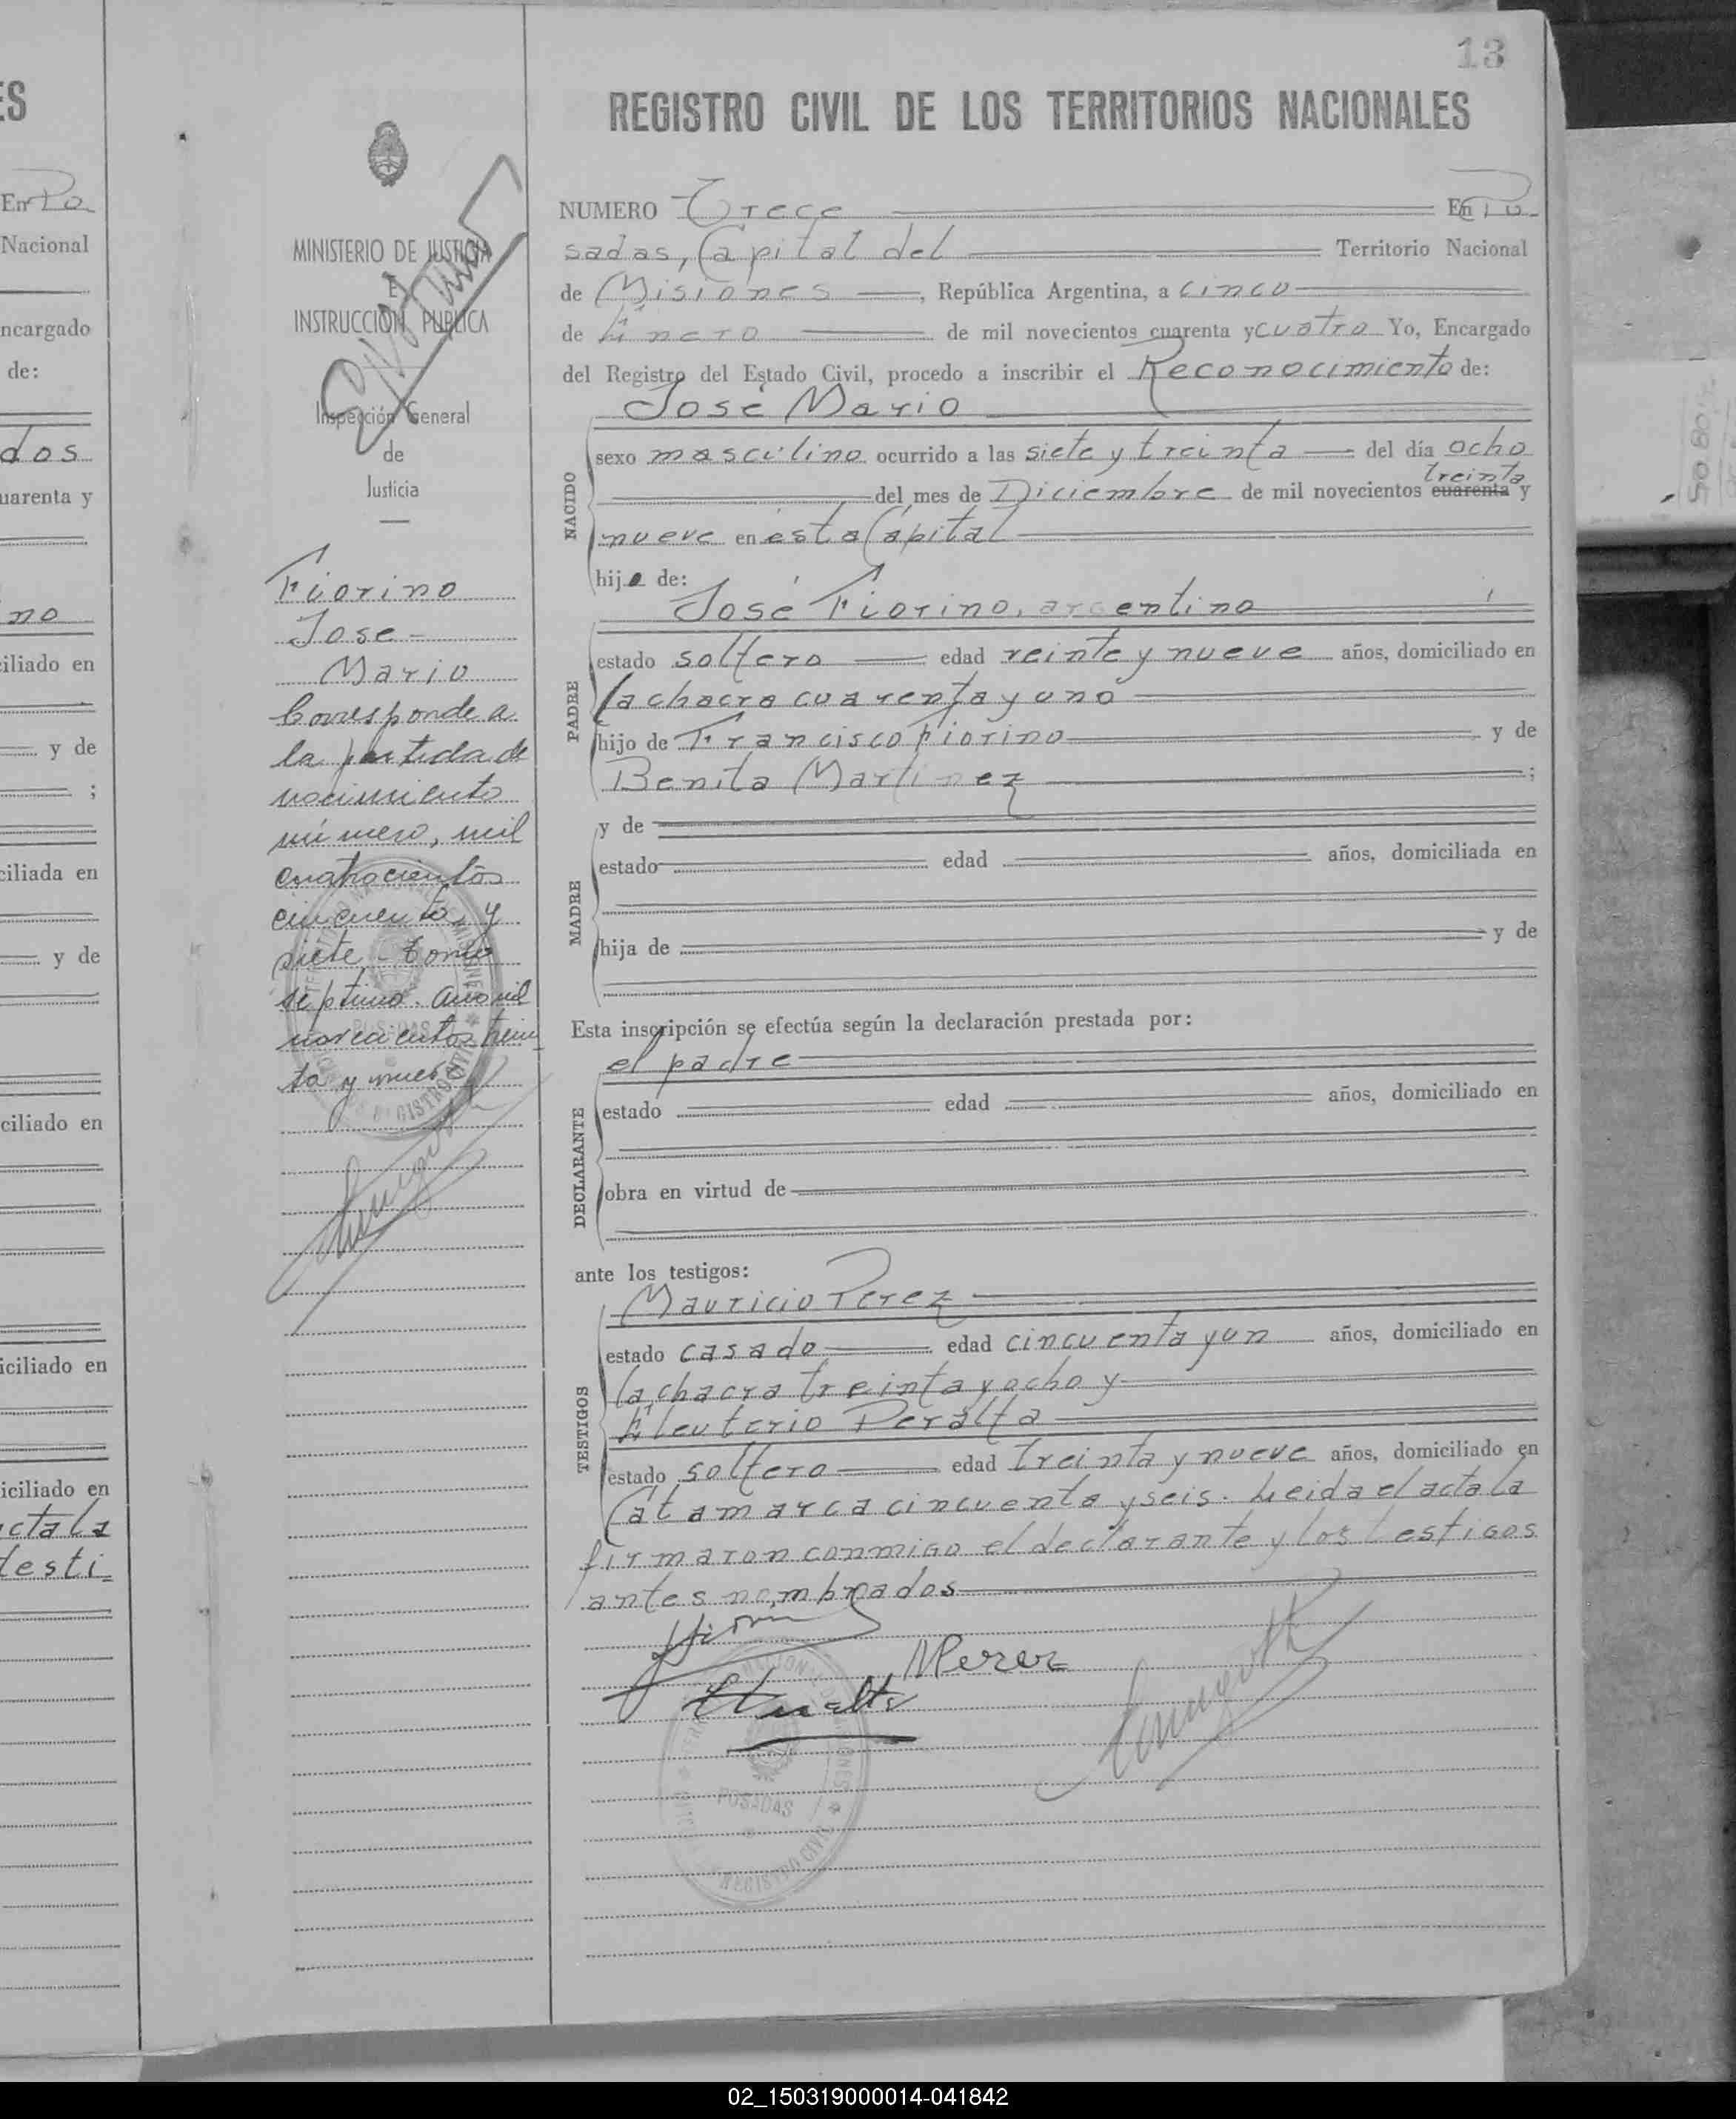 13
REGISTRO CIVIL DE LOS TERRITORIOS NACIONALES
NUMERO Trece En Po-
sadas, Capital del Territorio Nacional
de Misiones, República Argentina, a cinco
de Enero de mil novecientos cuarenta y cuatro Yo, Encargado
del Registro del Estado Civil, procedo a inscribir el Reconocimiento de:
José Mario
NACIDO
sexo masculino ocurrido a las siete y treinta del día ocho
del mes de Diciembre de mil novecientos cuarenta treinta y
nueve en esta Capital
hijo de:
José Fiorino, argentino
PADRE
estado soltero edad veinte y nueve años, domiciliado en
la chacra cuarenta y uno
hijo de Francisco Fiorino y de
Benita Martinez ;
MADRE
y de
estado edad años, domiciliada en
hija de y de
Esta inscripción se efectúa según la declaración prestada por:
el padre
DECLARANTE
estado edad años, domiciliado en
obra en virtud de
ante los testigos:
Mauricio Perez
TESTIGOS
estado casado edad cincuenta y un años, domiciliado en
la chacra treinta y ocho y
Eleuterio Peralta
estado soltero edad treinta y nueve años, domiciliado en
Catamarca cincuenta y seis. Leida el acta la
firmaron conmigo el declarante y los testigos
antes nombrados
MPerez
POSADAS
REGISTRO CIVIL
MINISTERIO DE JUSTICIA
E
INSTRUCCION PUBLICA
Inspección General
de
Justicia
Fiorino
Jose
Mario
Corresponde a
la partida de
nacimiento
número, mil
cuatrocientos
cincuenta y
siete - tomo
séptimo. Año mil
novecientos trein
ta y nueve
ES
En Po
Nacional
ncargado
de:
dos
uarenta y
no
iliado en
y de
;
ciliada en
y de
ciliado en
iciliado en
iciliado en
cta la
testi-
02_150319000014-041842